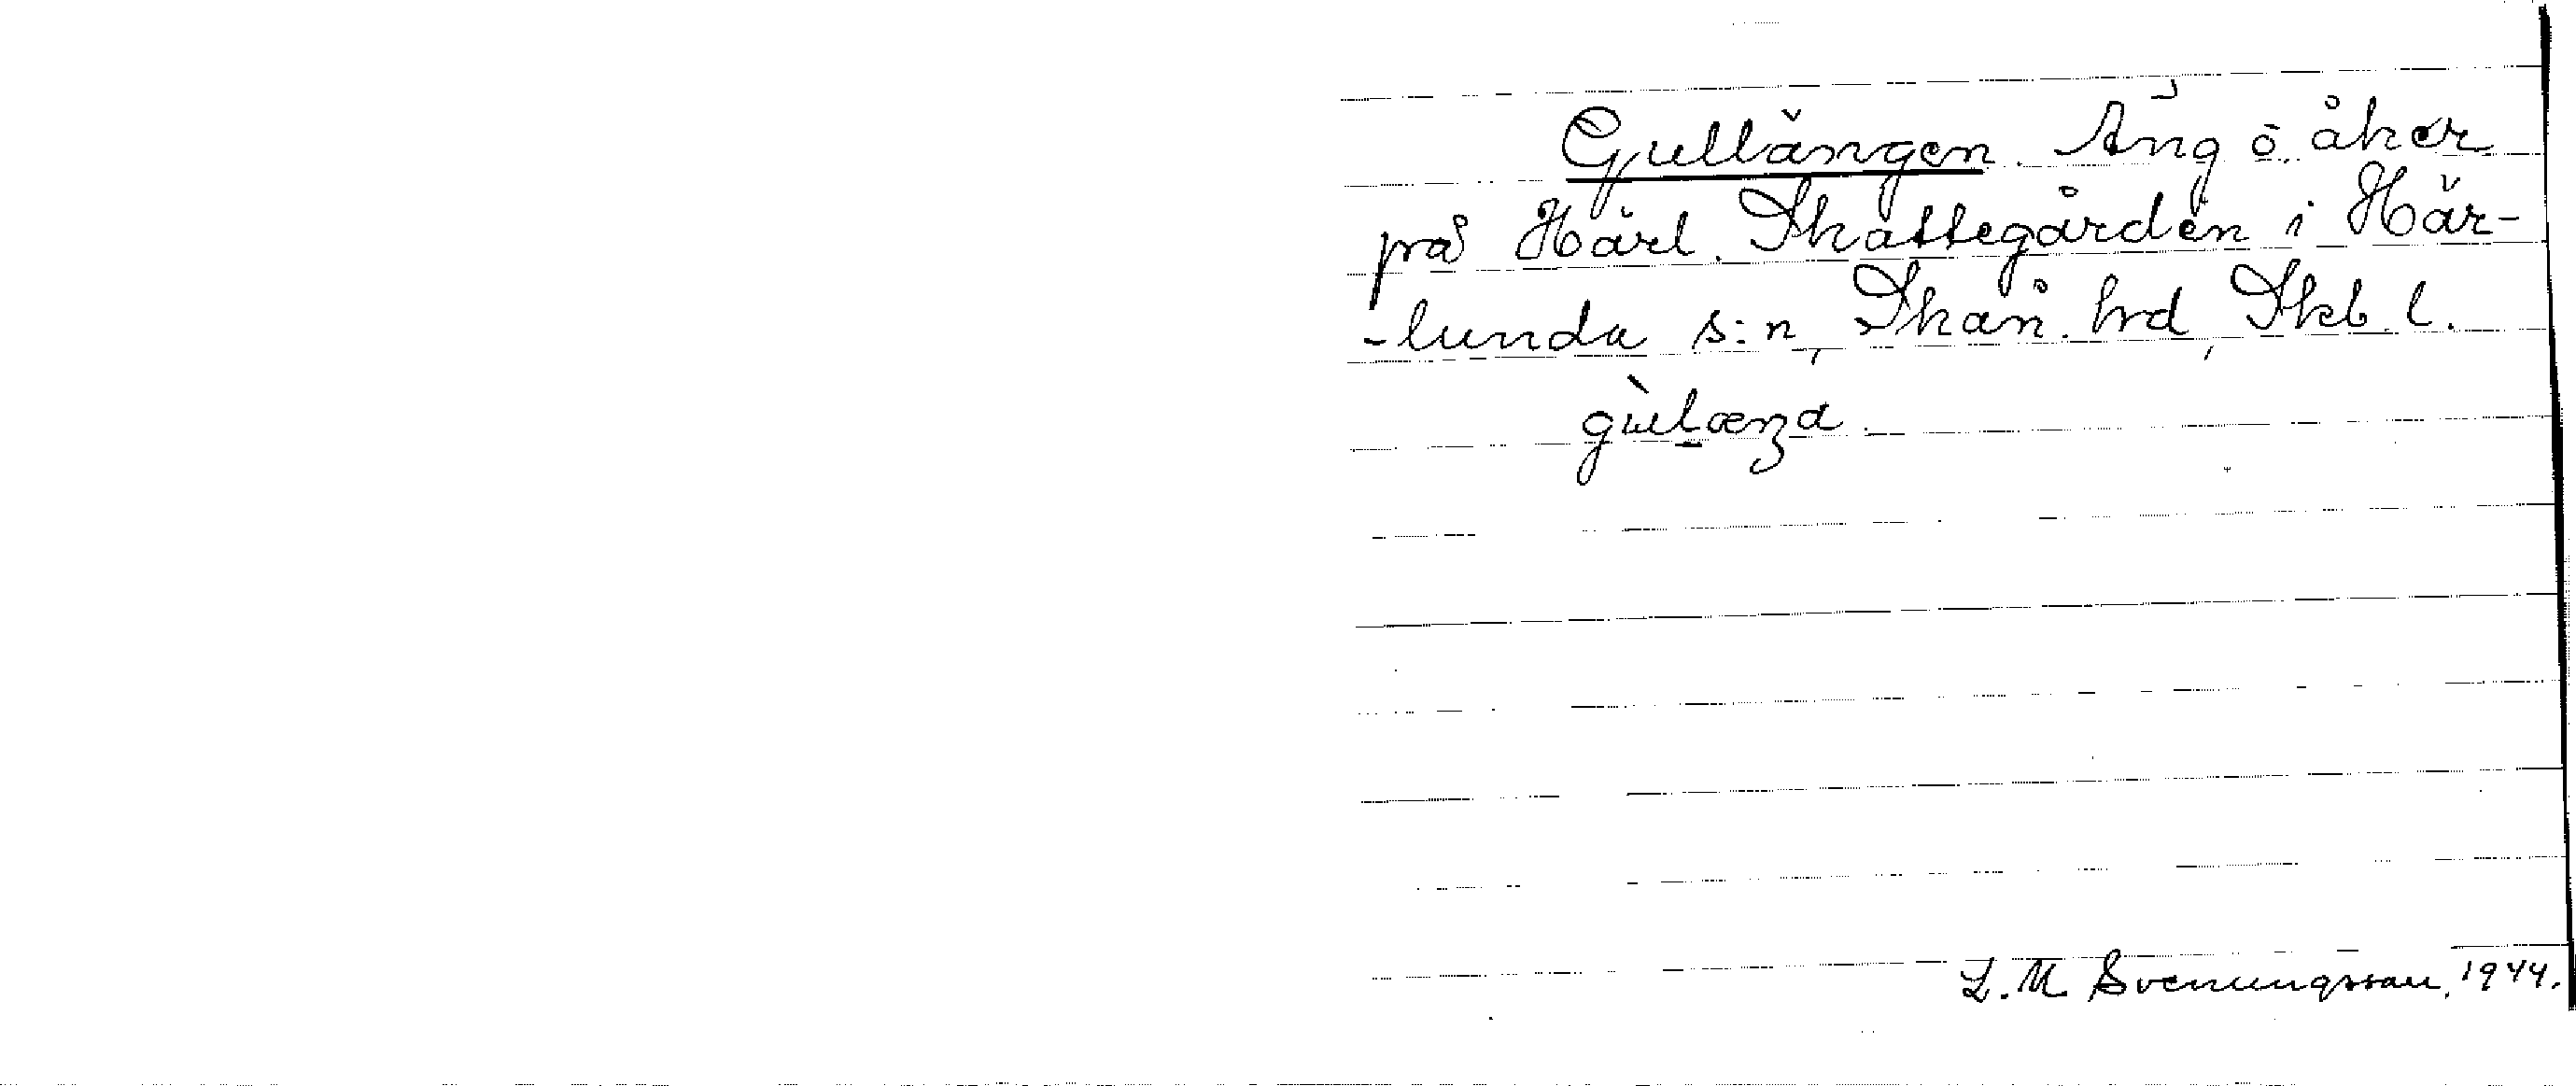 Gullängen. Äng o. åker
på Härl. Skattegården i Här-
-lunda s:n, Skån. hrd, Skb. l.
gùlænʒa
L. M. Svenungsson, 1944.